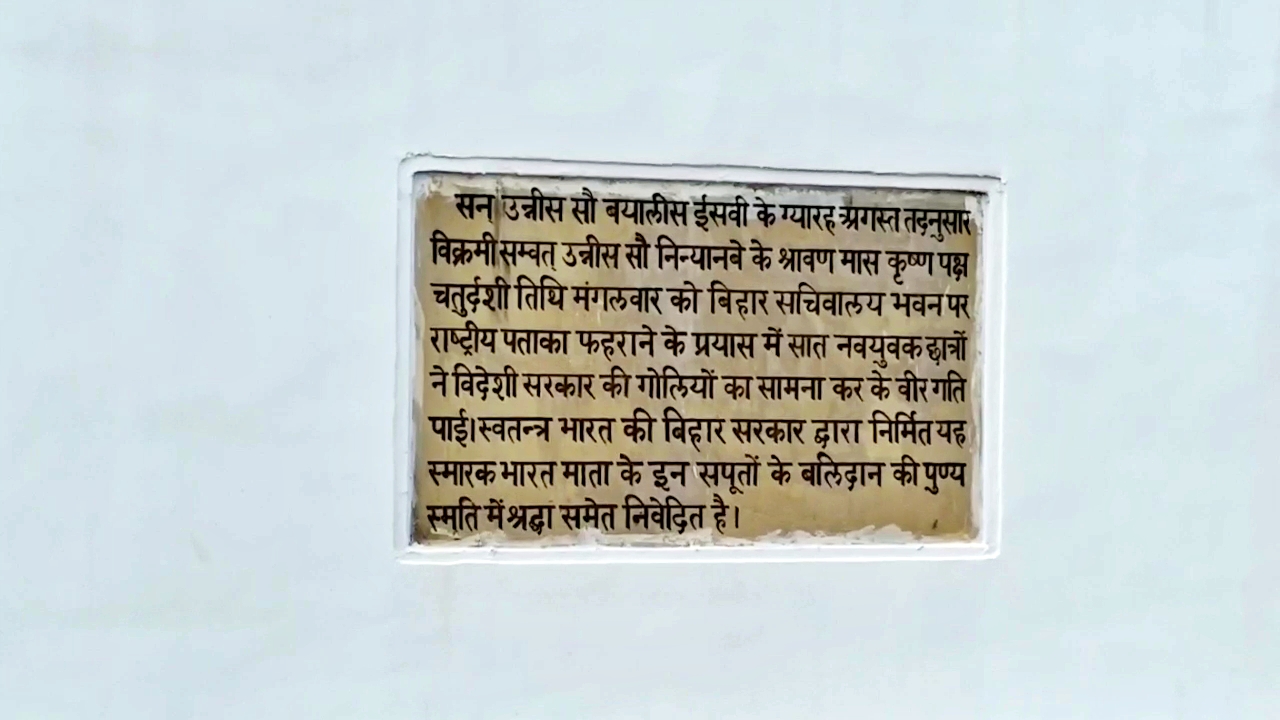 सन् उन्नीस सौ बयालीस ईसवी के ग्यारह अगस्त तदनुसार
विक्रमी सम्वत् उन्नीस सौ निन्यानबे के श्रावण मास कृष्ण पक्ष
चतुर्दशी तिथि मंगलवार को बिहार सचिवालय भवन पर
राष्ट्रीय पताका फहराने के प्रयास में सात नवयुवक छात्रों
ने विदेशी सरकार की गोलियों का सामना कर के वीर गति
पाई। स्वतन्त्र भारत की बिहार सरकार द्वारा निर्मित यह
स्मारक भारत माता के इन सपूतों के बलिदान की पुण्य
स्मृति में श्रद्धा समेत निवेदित है।